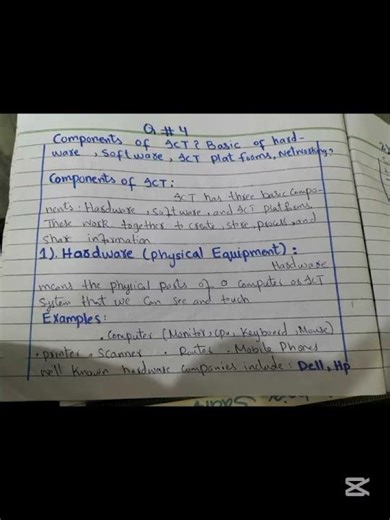 Q # 4
Components of ICT? Basic of hard-
ware, Software, ICT plat foums, Networking?
Components of ICT:
ICT has three basic compo-
nents: Hardware, software, and ICT platfoums.
These work together to create, store, process, and
share information
1). Hardware (physical Equipment):
Hardware
means the physical parts of a computer or ICT
System that we can see and touch
Examples:
• Computer (Monitor, CPU, Keyboard, Mouse)
• printer • Scanner • Router • Mobile Phones
well known hardware companies include: Dell, Hp